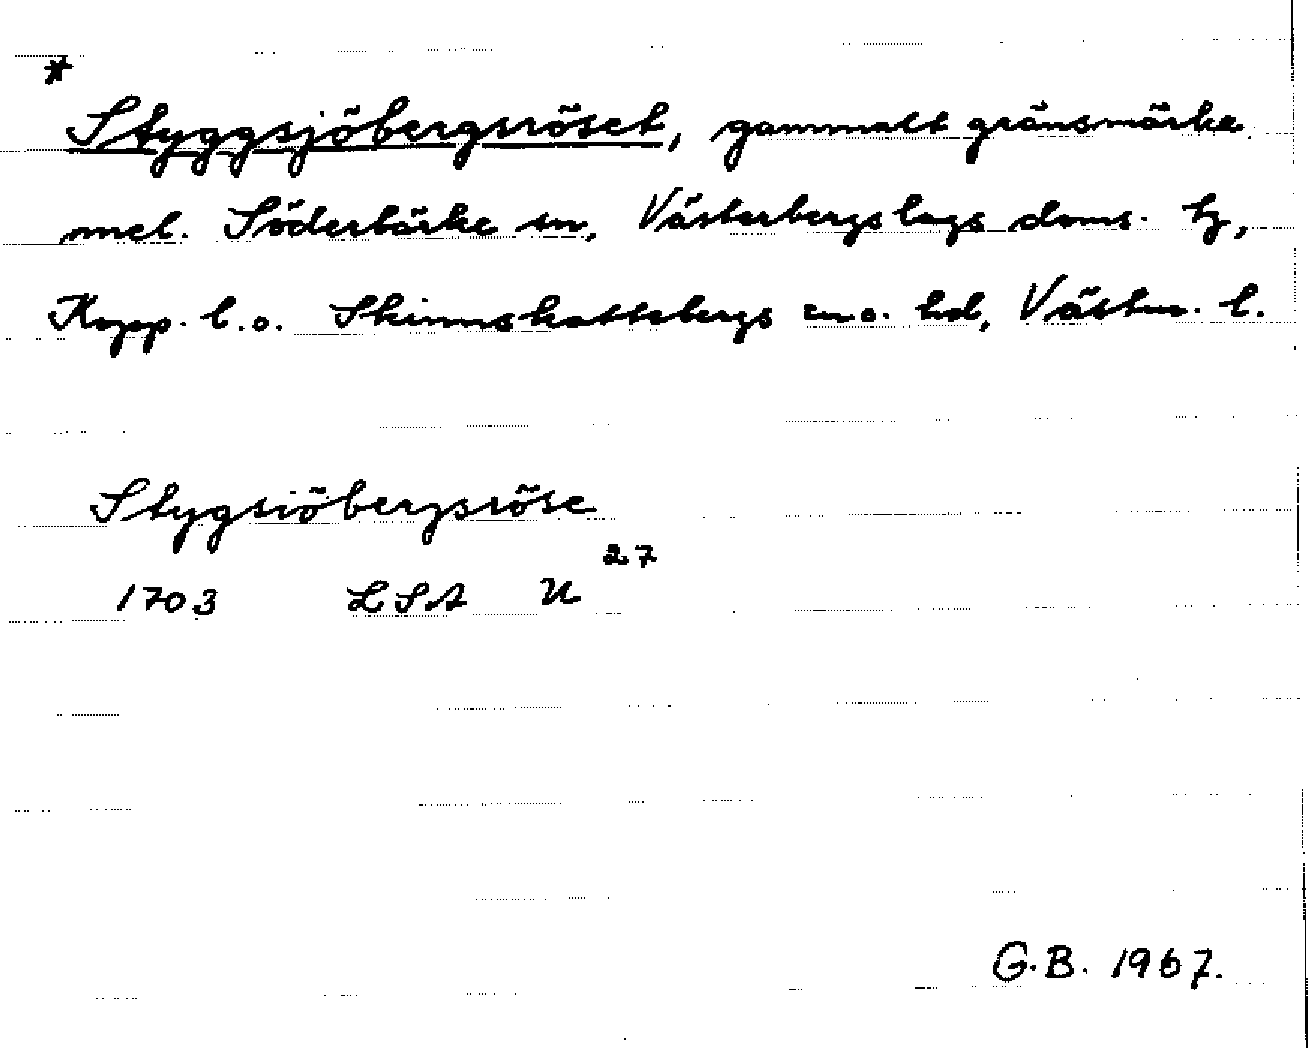 *
Styggsjöbergsröset, gammalt gränsmärke
mel. Söderbärke sn, Västerbergslags doms. tg,
Kopp. l. o. Skinnskattebergs sn o. hd, Västm. l.
Stygsiöbergsröse
27
1703 LSA U
G.B. 1967.